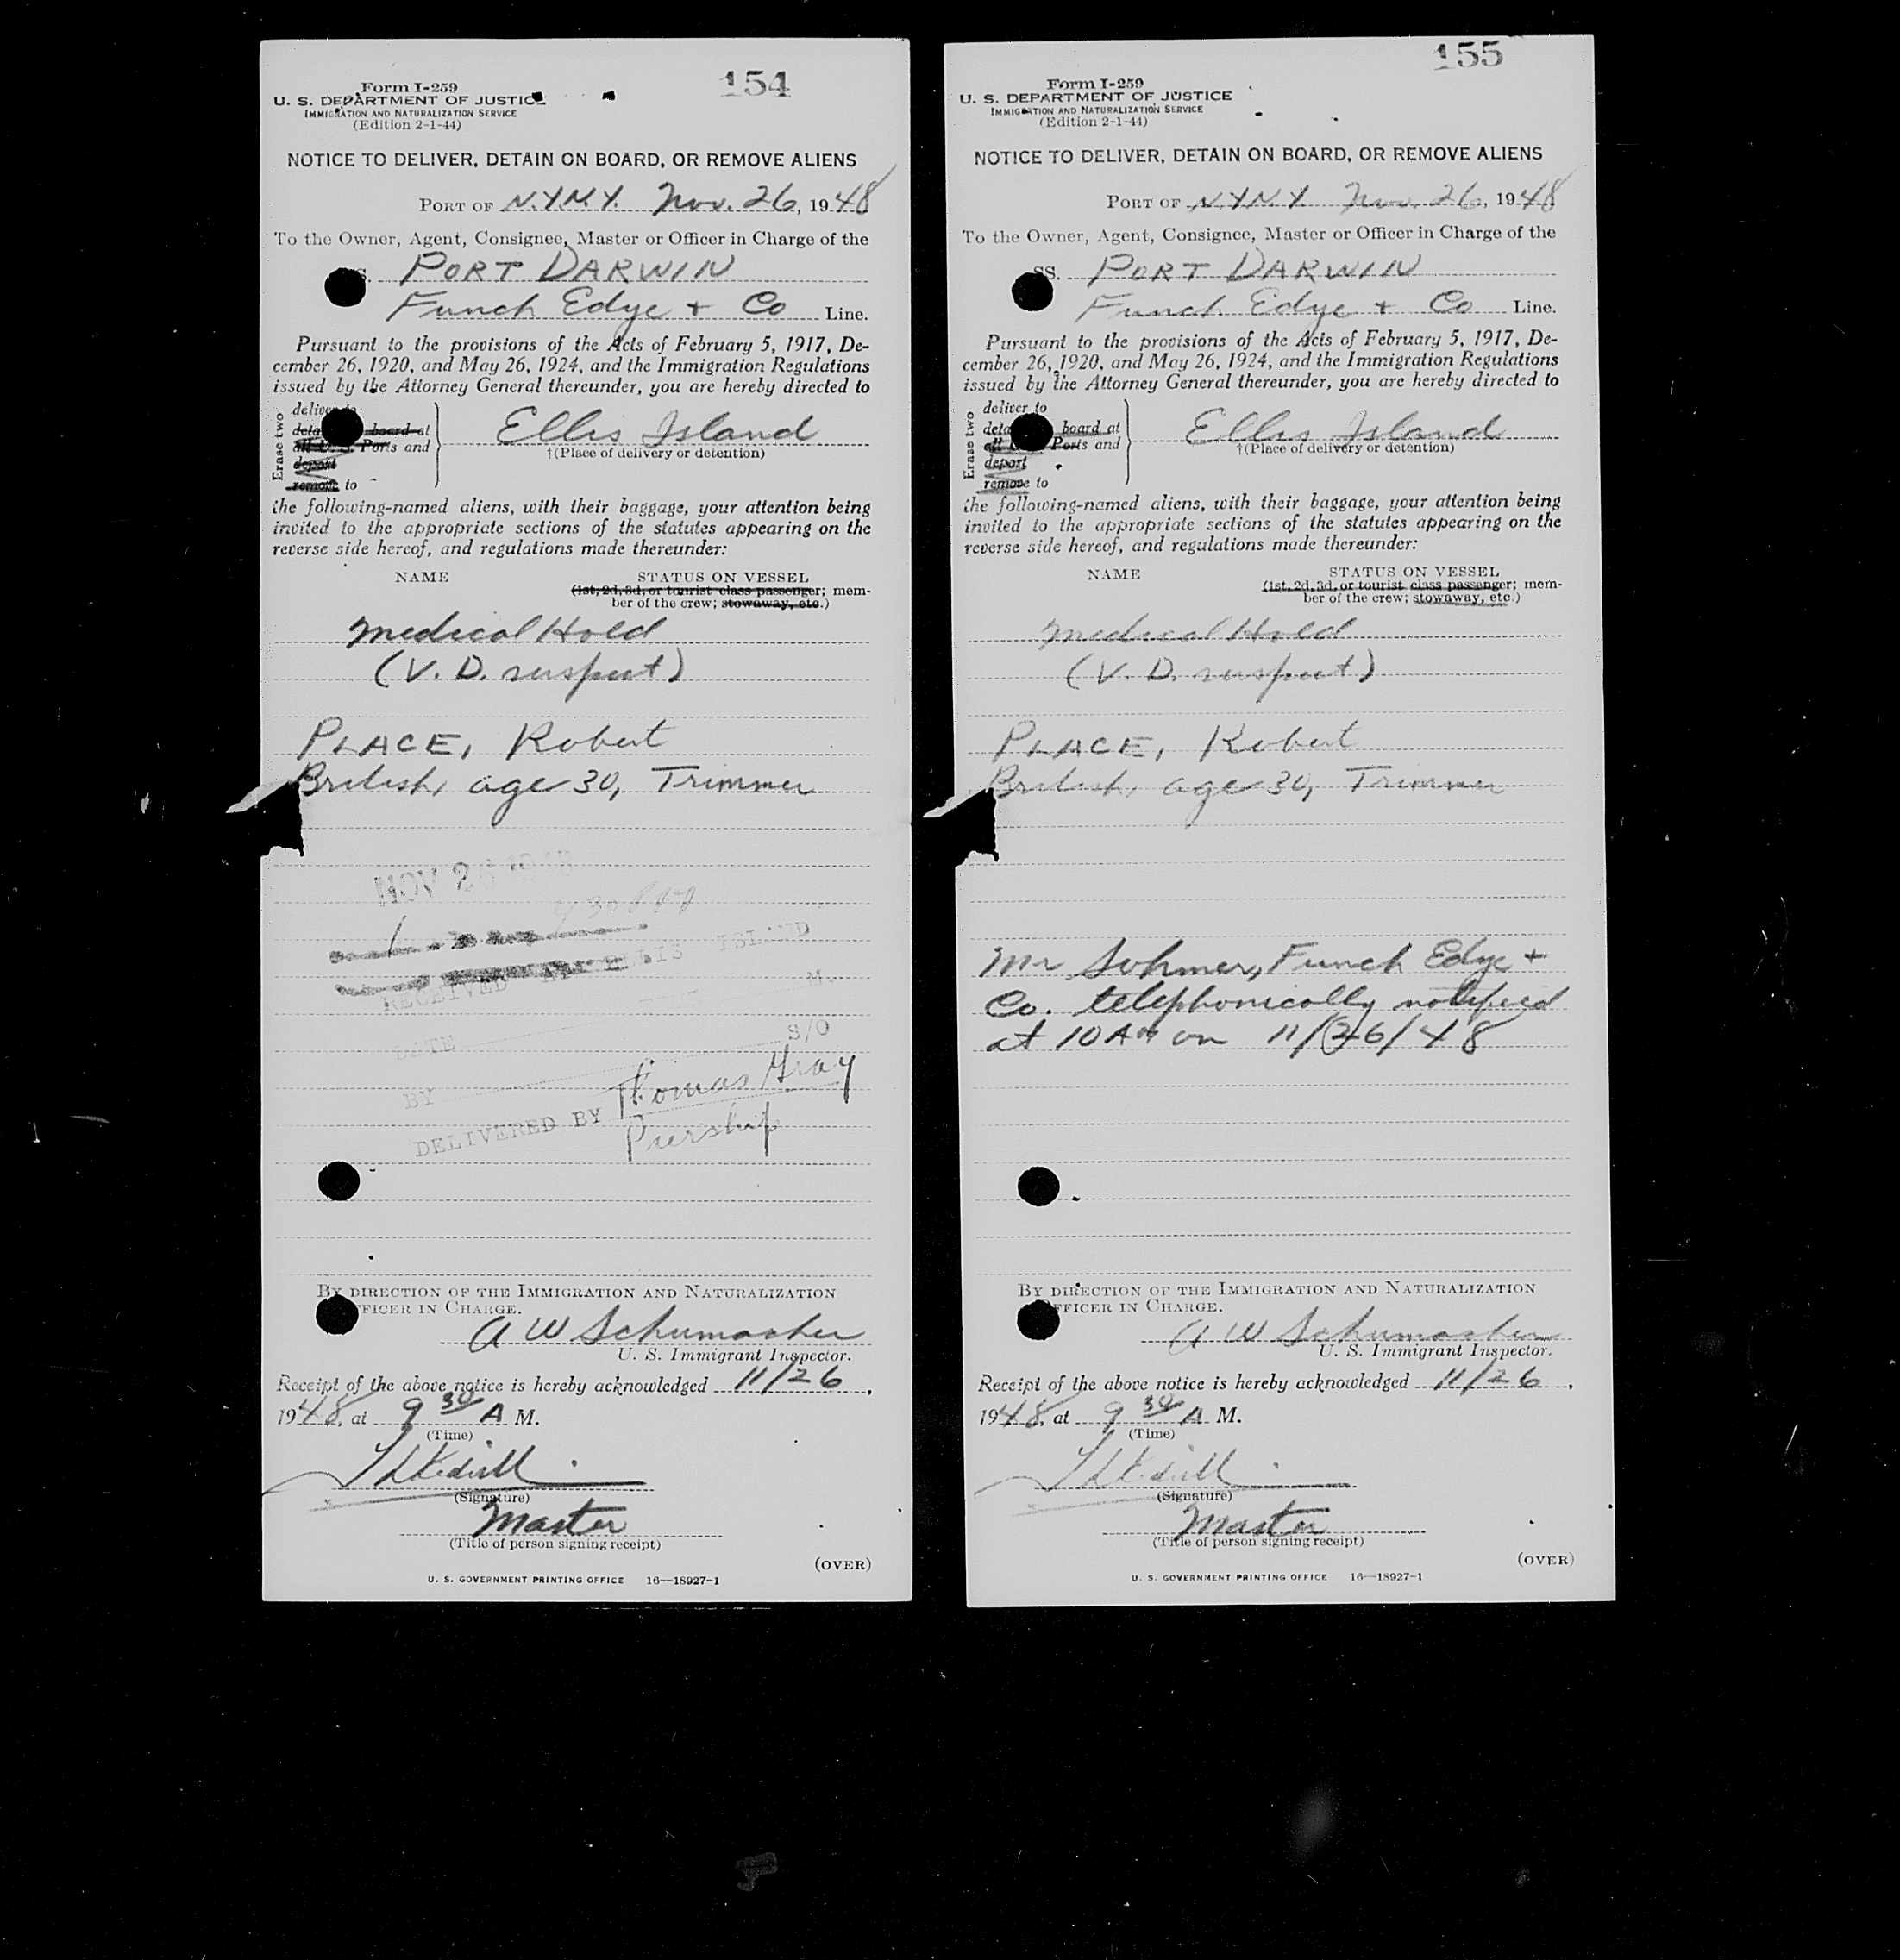 154
Form I-259
U. S. DEPARTMENT OF JUSTICE
IMMIGRATION AND NATURALIZATION SERVICE
(Edition 2-1-44)
NOTICE TO DELIVER, DETAIN ON BOARD, OR REMOVE ALIENS
PORT OF N.Y.N.Y. Nov. 26, 1948
To the Owner, Agent, Consignee, Master or Officer in Charge of the
PORT DARWIN
Funch Edye + Co Line.
Pursuant to the provisions of the Acts of February 5, 1917, De-
cember 26, 1920, and May 26, 1924, and the Immigration Regulations
issued by the Attorney General thereunder, you are hereby directed to
Erase two
deliver to
board at
all U. S. Ports and
deport
remove to
Ellis Island
†(Place of delivery or detention)
the following-named aliens, with their baggage, your attention being
invited to the appropriate sections of the statutes appearing on the
reverse side hereof, and regulations made thereunder:
NAME STATUS ON VESSEL
(1st, 2d, 3d, or tourist class passenger; mem-
ber of the crew; stowaway, etc.)
Medical Hold
(V. D. suspect)
PLACE, Robert
British, age 30, Trimmer
NOV 26 1948
RECEIVED AT ELLIS ISLAND
M.
DATE
S/O
BY
DELIVERED BY Thomas Gray
Pership
BY DIRECTION OF THE IMMIGRATION AND NATURALIZATION
OFFICER IN CHARGE.
A W Schumacher
U. S. Immigrant Inspector.
Receipt of the above notice is hereby acknowledged 11/26,
1948, at 9 30 A M.
(Time)
(Signature)
Master
(Title of person signing receipt)
(OVER)
U. S. GOVERNMENT PRINTING OFFICE 16—18927-1
155
Form I-259
U. S. DEPARTMENT OF JUSTICE
IMMIGRATION AND NATURALIZATION SERVICE
(Edition 2-1-44)
NOTICE TO DELIVER, DETAIN ON BOARD, OR REMOVE ALIENS
PORT OF N.Y.N.Y. Nov. 26, 1948
To the Owner, Agent, Consignee, Master or Officer in Charge of the
SS. PORT DARWIN
Funch Edye + Co Line.
Pursuant to the provisions of the Acts of February 5, 1917, De-
cember 26, 1920, and May 26, 1924, and the Immigration Regulations
issued by the Attorney General thereunder, you are hereby directed to
Erase two
deliver to
board at
all U. S. Ports and
deport
remove to
Ellis Island
†(Place of delivery or detention)
the following-named aliens, with their baggage, your attention being
invited to the appropriate sections of the statutes appearing on the
reverse side hereof, and regulations made thereunder:
NAME STATUS ON VESSEL
(1st, 2d, 3d, or tourist class passenger; mem-
ber of the crew; stowaway, etc.)
Medical Hold
(V. D. suspect)
PLACE, Robert
British, age 30, Trimmer
Mr Sohmer, Funch Edye +
Co. telephonically notified
at 10 AM on 11/26/48
BY DIRECTION OF THE IMMIGRATION AND NATURALIZATION
OFFICER IN CHARGE.
A W Schumacher
U. S. Immigrant Inspector.
Receipt of the above notice is hereby acknowledged 11/26,
1948, at 9 30 A M.
(Time)
(Signature)
Master
(Title of person signing receipt)
(OVER)
U. S. GOVERNMENT PRINTING OFFICE 16—18927-1